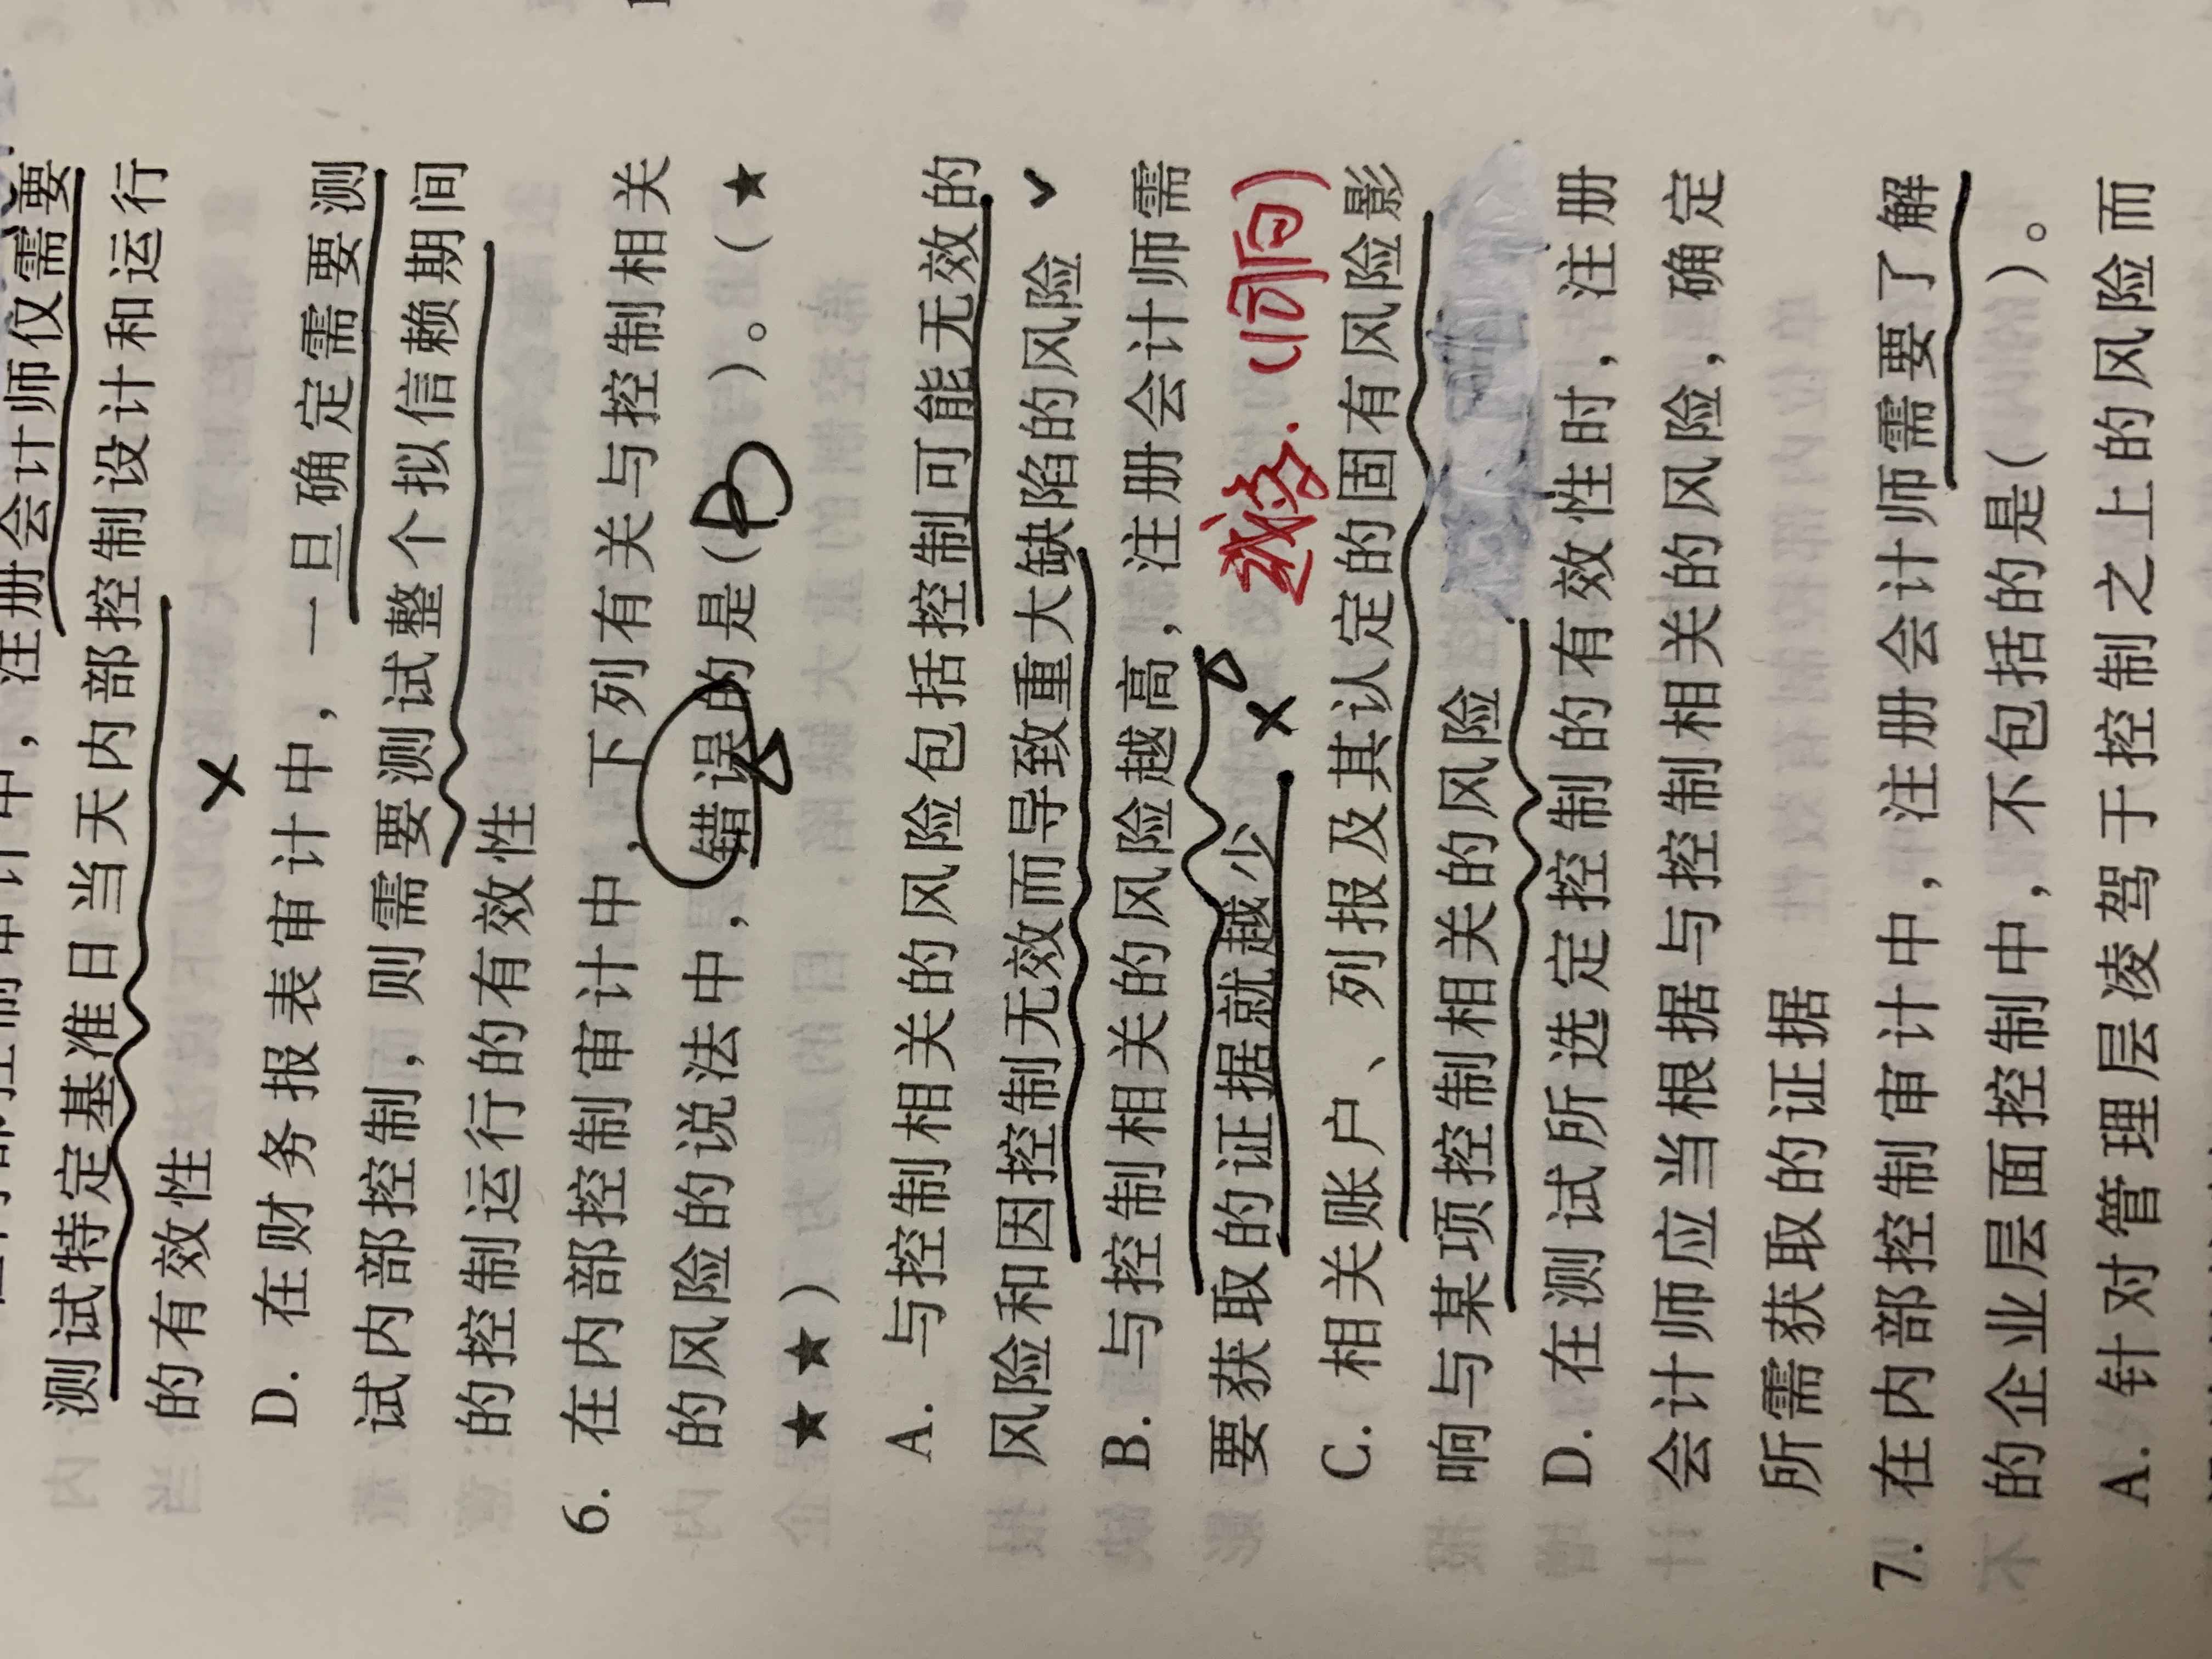 测试特定基准日当天内部控制设计和运行
的有效性 ×
D. 在财务报表审计中，一旦确定需要测
试内部控制，则需要测试整个拟信赖期间
的控制运行的有效性
6. 在内部控制审计中，下列有关与控制相关
的风险的说法中，错误的是（B）。（★
★★）
A. 与控制相关的风险包括控制可能无效的
风险和因控制无效而导致重大缺陷的风险 ✓
B. 与控制相关的风险越高，注册会计师需
要获取的证据就越少 × 越多.（同向）
C. 相关账户、列报及其认定的固有风险影
响与某项控制相关的风险
D. 在测试所选定控制的有效性时，注册
会计师应当根据与控制相关的风险，确定
所需获取的证据
7. 在内部控制审计中，注册会计师需要了解
的企业层面控制中，不包括的是（ ）。
A. 针对管理层凌驾于控制之上的风险而